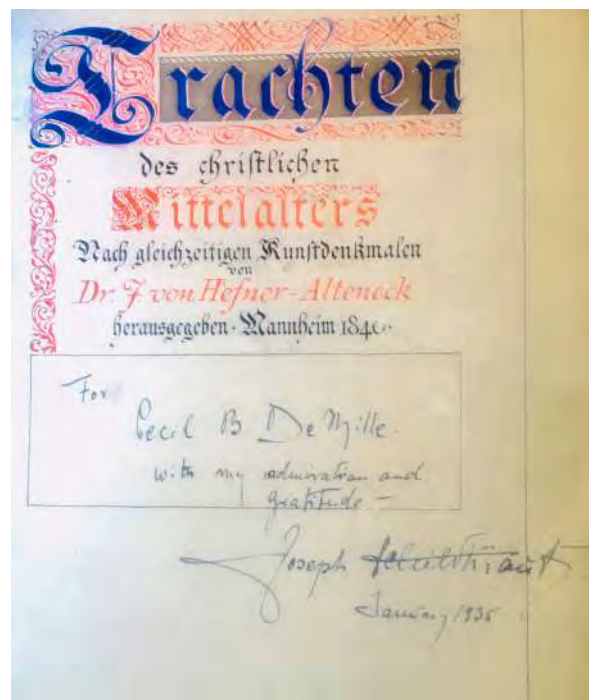 Trachten
des christlichen
Mittelalters
Nach gleichzeitigen Kunstdenkmalen
von
Dr. J. von Hefner-Alteneck
herausgegeben. Mannheim
For
Cecil B. De Mille.
with my admiration and
gratitude —
Joseph Schildkraut
January 1935